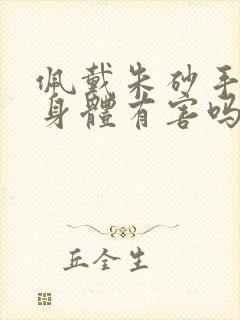 佩戴朱砂手
身體有害吗
丘全生